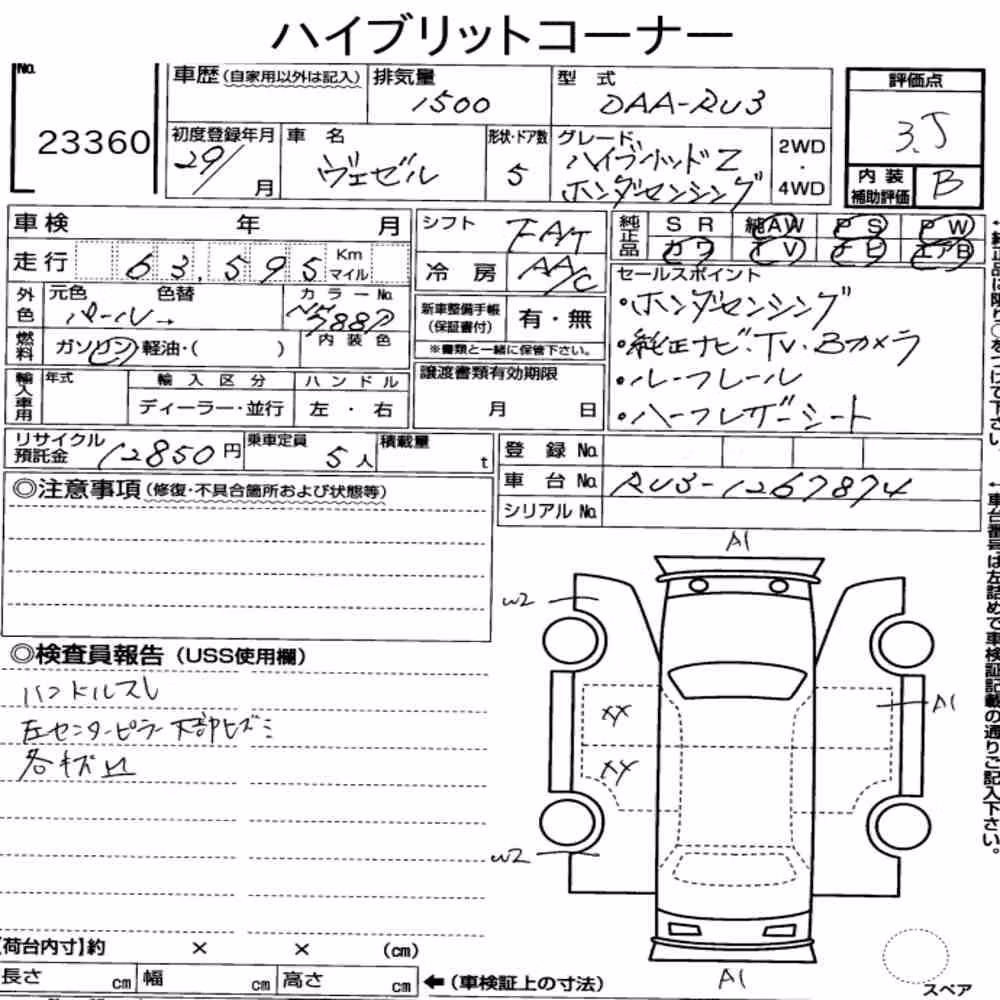 ハイブリットコーナー
No. 23360
車歴(自家用以外は記入)
排気量 1500
型式 DAA-RU3
評価点 3.5
初度登録年月 29/ 月
車名 ヴェゼル
形状・ドア数 5
グレード ハイブリッドZ
ホンダセンシング
2WD・4WD
内装補助評価 B
車検 年 月
シフト FAT
純正品 SR 純AW PS PW
カワ TV ナビ エアB
走行 63,595 Km マイル
冷房 AA/C
セールスポイント
・ホンダセンシング
・純正ナビ・TV・Bカメラ
・ルーフレール
・ハーフレザーシート
外色 元色 パール 色替 カラーNo. NH788P
新車整備手帳(保証書付) 有・無
※書類と一緒に保管下さい。
燃料 ガソリン 軽油・( ) 内装色
輸入車用 年式 輸入区分 ハンドル
ディーラー・並行 左・右
譲渡書類有効期限
月 日
リサイクル預託金 12850円
乗車定員 5人
積載量 t
登録No.
車台No. RU3-1267874
シリアルNo.
◎注意事項(修復・不具合箇所および状態等)
◎検査員報告(USS使用欄)
ハンドルスレ
左センターピラー下部ヒズミ
各キズ凹
A1
W2
XX
A1
XX
W2
A1
スペア
【荷台内寸】約 × × (cm)
長さ cm 幅 cm 高さ cm ←(車検証上の寸法)
↑純正品に限り○をつけて下さい。
↑車台番号は左詰めで車検証記載の通りご記入下さい。